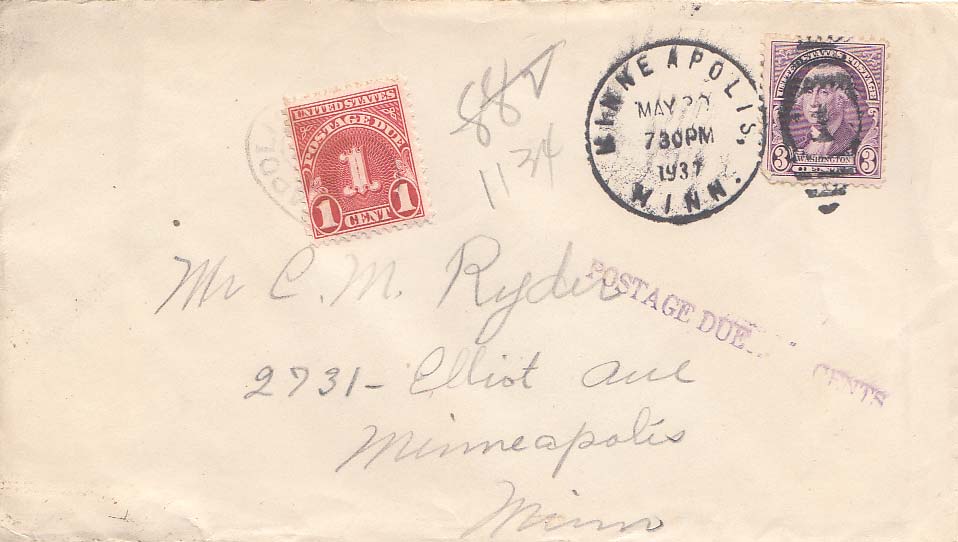 UNITED STATES
POSTAGE DUE
1
1 CENT 1
88
1134
MINNEAPOLIS,
MINN.
MAY
730PM
1937
UNITED STATES POSTAGE
3 WASHINGTON 3
Mr C. M. Ryder
2731- Elliot Ave
Minneapolis
Minn
POSTAGE DUE CENTS